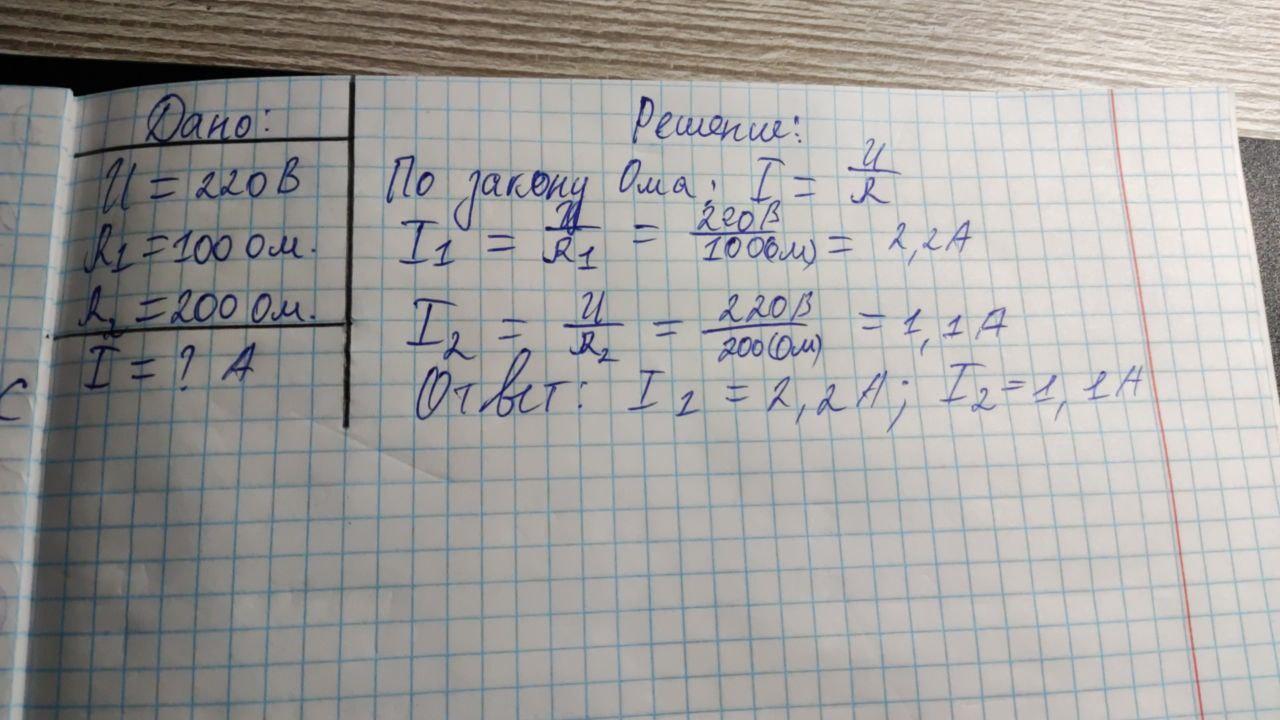 Дано:
U = 220 В
R1 = 100 Ом.
R2 = 200 Ом.
I = ? А
Решение:
По закону Ома: I = U/R
I1 = U/R1 = 220 В/100(Ом) = 2,2 А
I2 = U/R2 = 220 В/200(Ом) = 1,1 А
Ответ: I1 = 2,2 А; I2 = 1,1 А
с